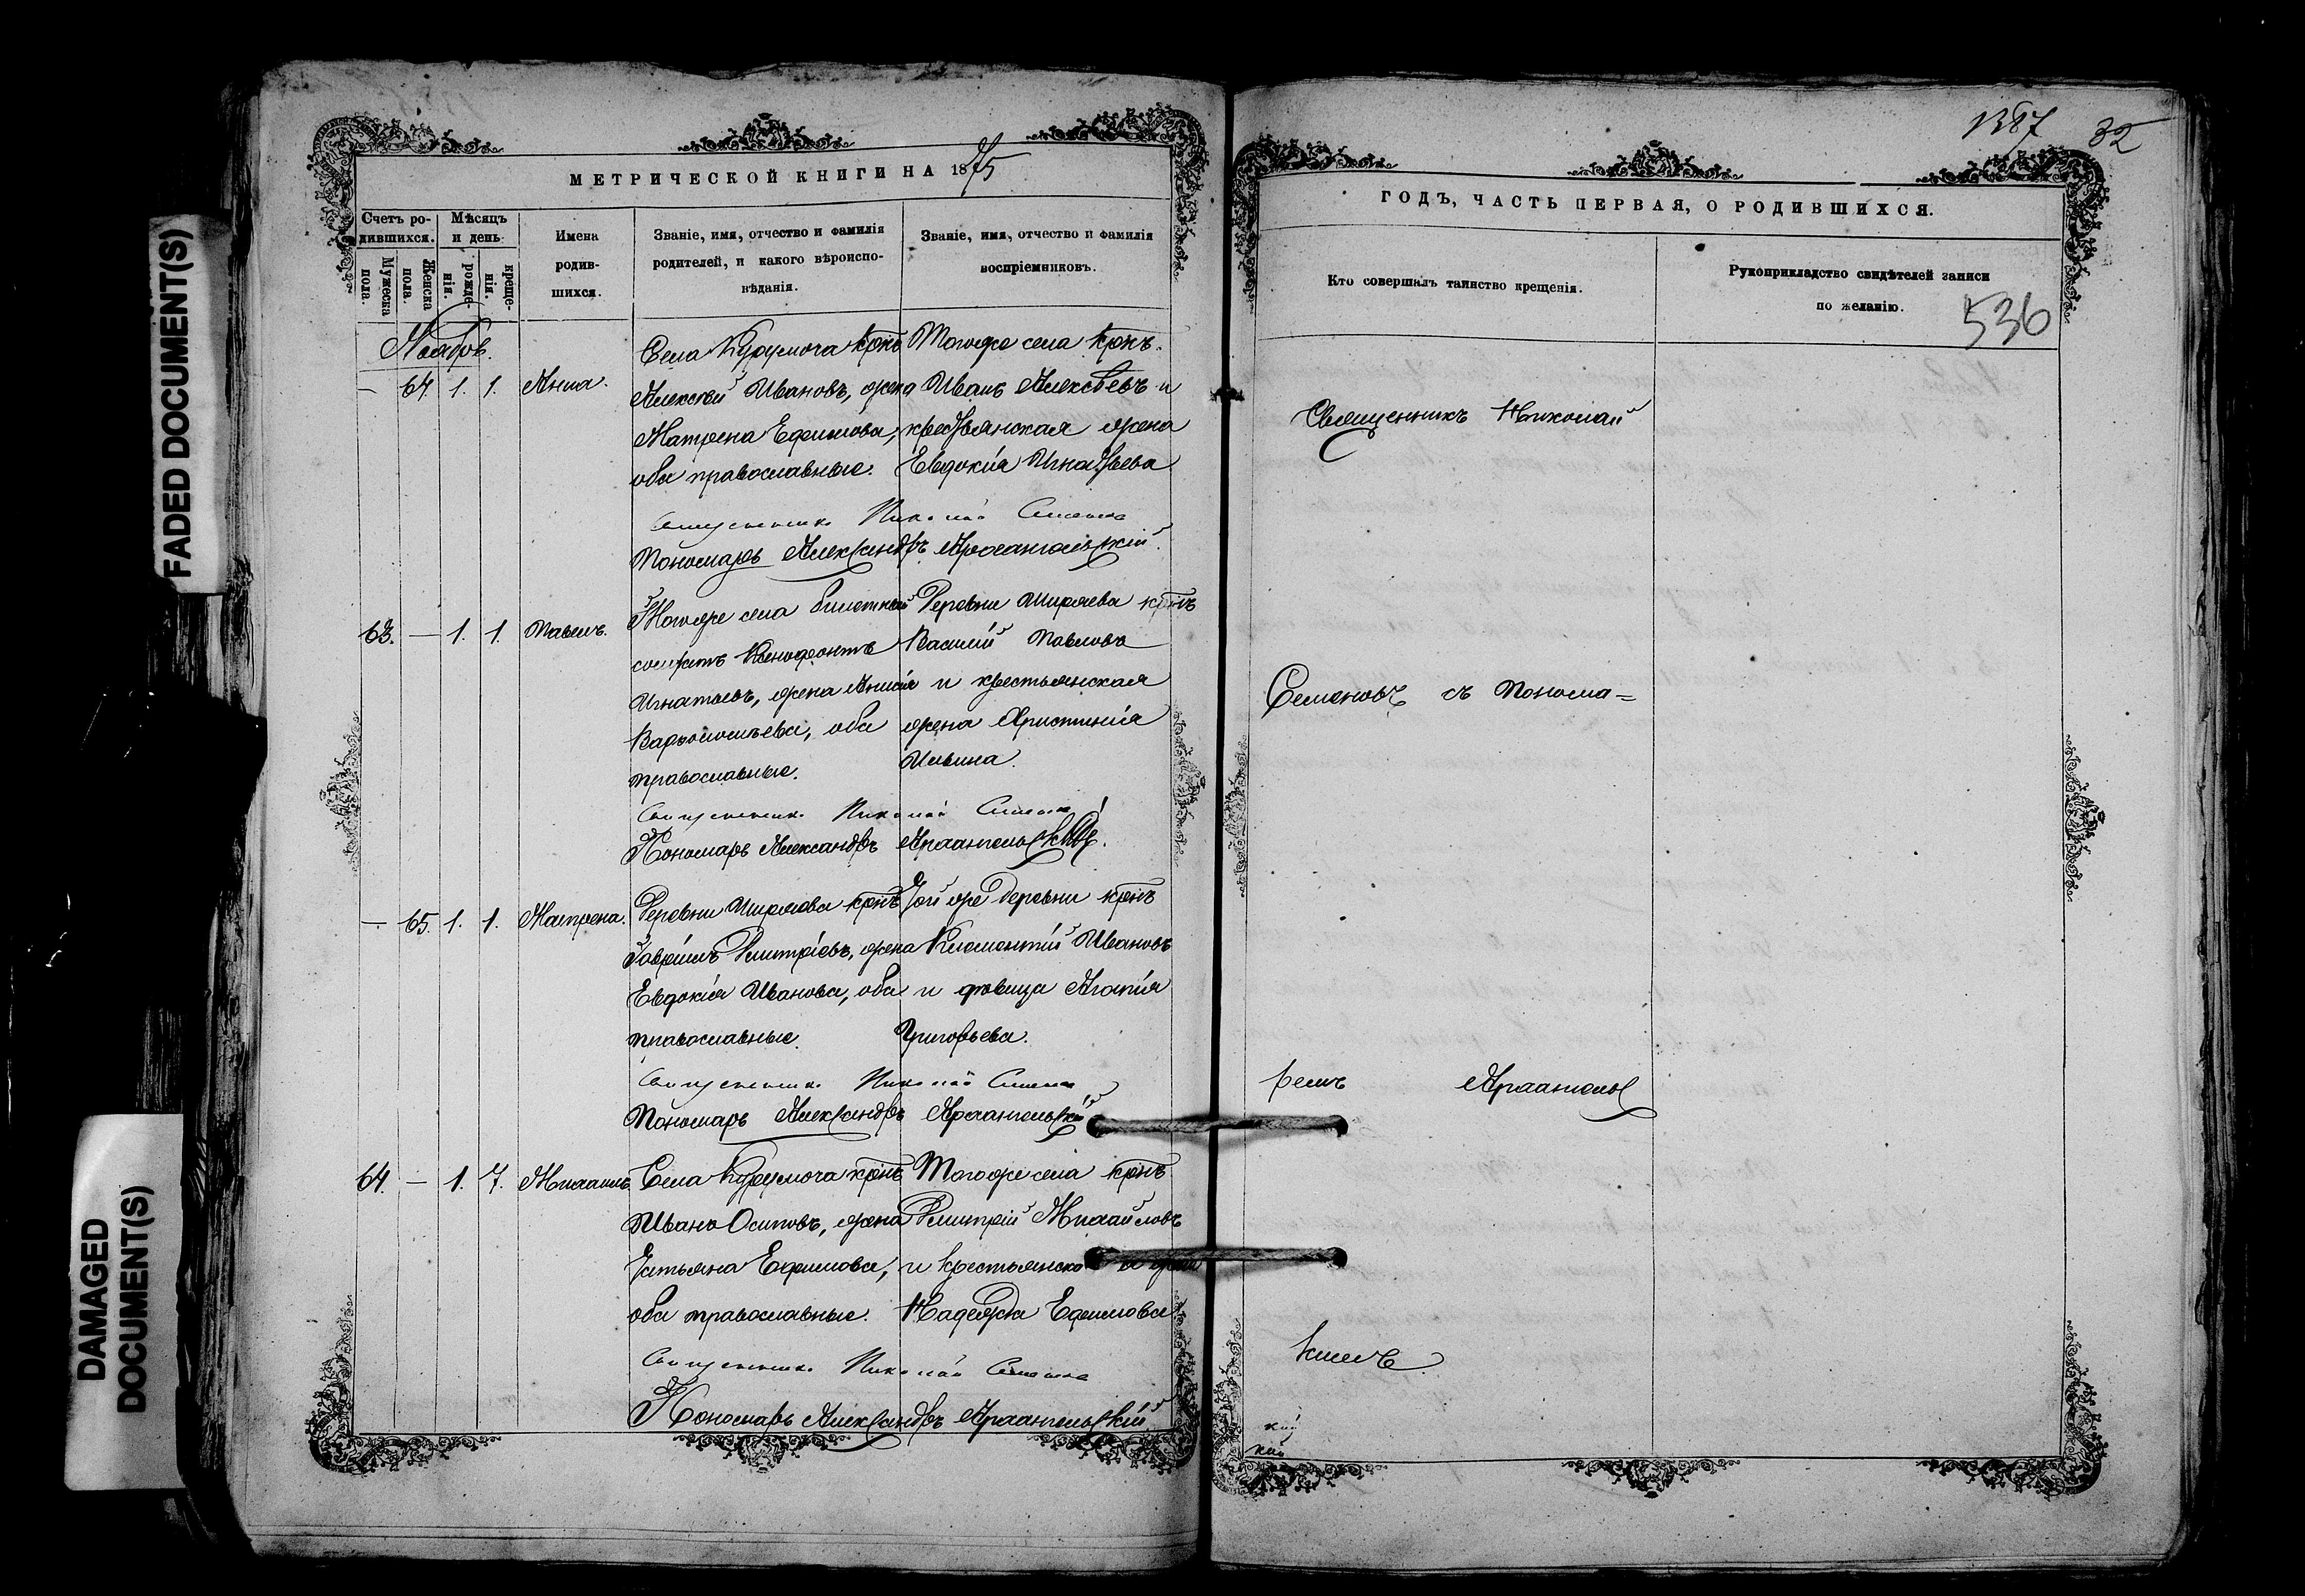 FADED DOCUMENT(S)
DAMAGED
DOCUMENT(S)
МЕТРИЧЕСКОЙ КНИГИ НА 1875
Счетъ ро-
дившихся.
Мѣсяцъ
и день
Мужеска
пола.
Женска
пола.
рожде-
нія.
креще-
нія.
Имена
родив-
шихся.
Званіе, имя, отчество и фамилія
родителей, и какого вѣроиспо-
вѣданія.
Званіе, имя, отчество и фамилія
воспріемниковъ.
Ноябрь.
— 64. 1. 1. Анна.
Села Курумоча крнъ
Алексѣй Ивановъ, жена
Матрена Ефимова,
оба православные.
Тогоже села крнъ.
Иванъ Алексѣевъ и
крестьянская жена
Евдокія Игнатьева
Священникъ Николай Семеновъ
Пономарь Александръ Архангельскій.
63. — 1. 1. Павелъ.
Тогоже села билетный
солдатъ Ксенофонтъ
Игнатьевъ, жена Анисія
Варфоломѣева, оба
православные.
Деревни Ширяева крнъ
Василій Павловъ
и крестьянская
жена Христинія
Ильина.
Священникъ Николай Семеновъ
Пономарь Александръ Архангельскій.
— 65. 1. 1. Матрена.
Деревни Ширяева крнъ
Гавріилъ Дмитріевъ, жена
Евдокія Иванова, оба
православные.
Той же деревни крнъ
Климентій Ивановъ
и дѣвица Агапія
Григорьева.
Священникъ Николай Семеновъ
Пономарь Александръ Архангельскій
64. — 1. 7. Михаилъ.
Села Курумоча крнъ
Иванъ Осиповъ, жена
Татьяна Ефимова,
оба православные.
Тогоже села крнъ
Дмитрій Михайловъ
и крестьянская жена
Надежда Ефимова.
Священникъ Николай Семеновъ
Пономарь Александръ Архангельскій
1387 32
ГОДЪ, ЧАСТЬ ПЕРВАЯ, О РОДИВШИХСЯ.
Кто совершалъ таинство крещенія.
Рукоприкладство свидѣтелей записи
по желанію.
536
Священникъ Николай
Семеновъ съ Понома=
ремъ Архангельс
кимъ
кій
кій